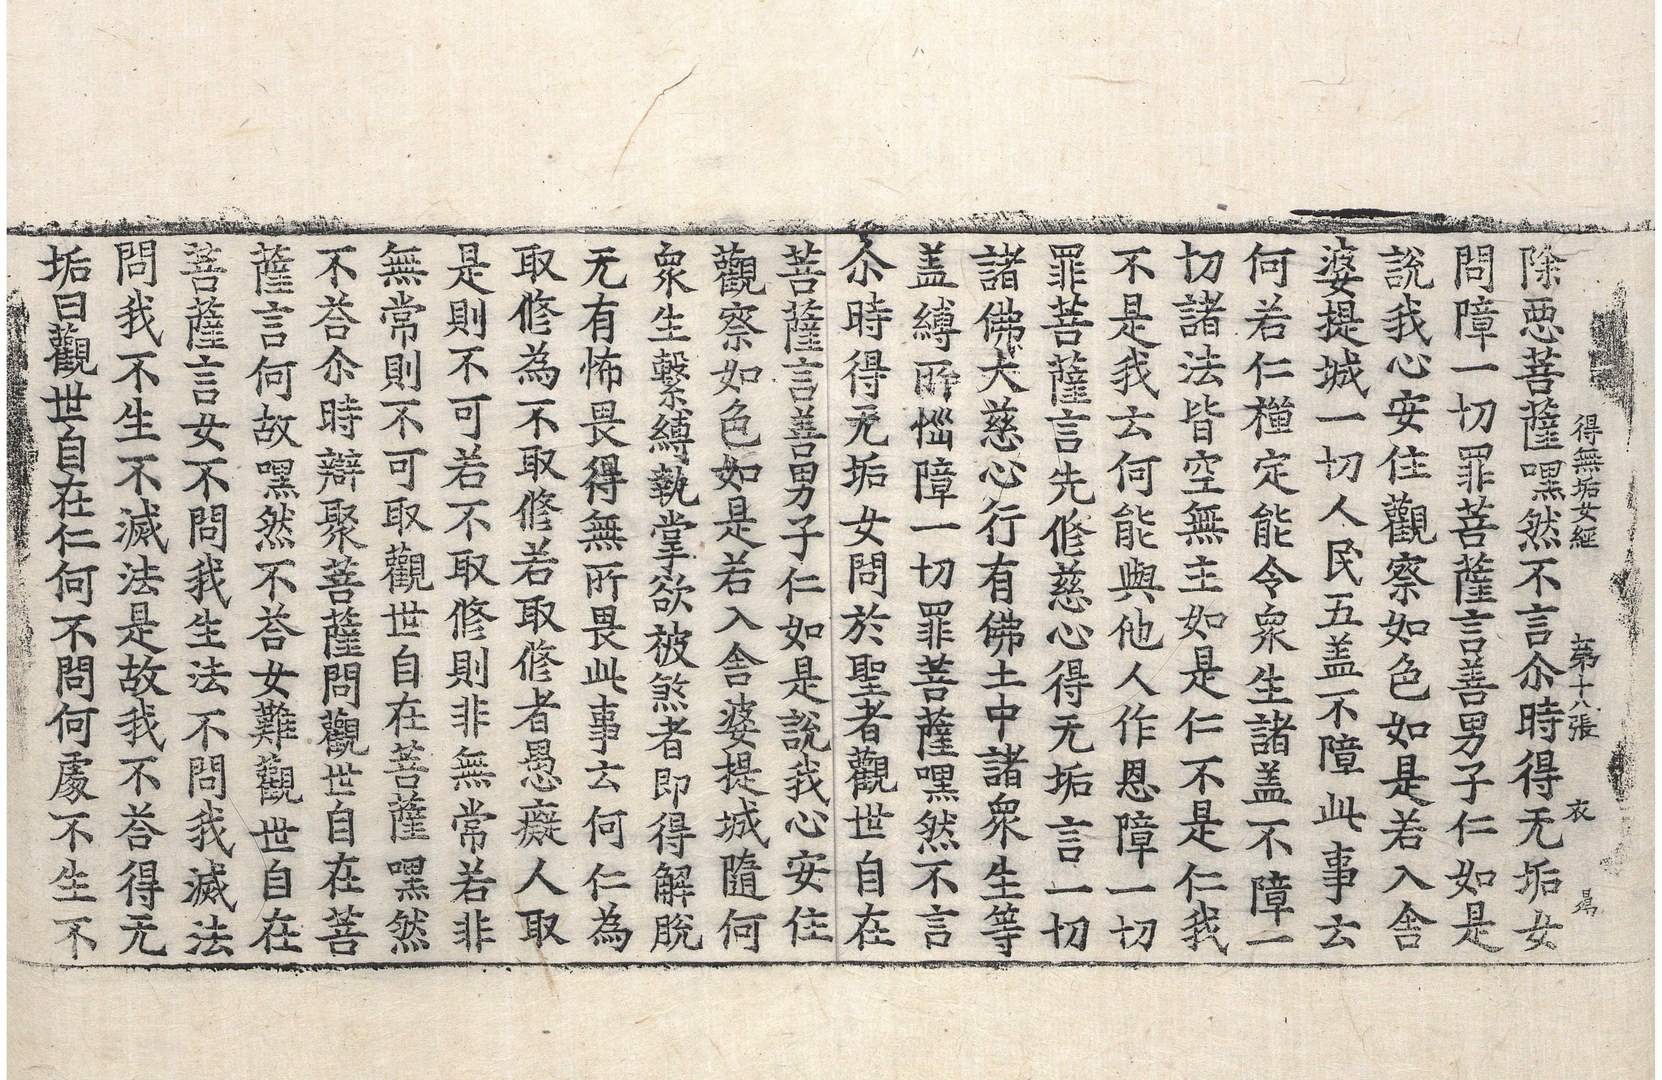 得無垢女經　第十八張　衣
除悪菩薩嘿然不言尒時得无垢女
問障一切罪菩薩言善男子仁如是
說我心安住觀察如色如是若入舍
婆提城一切人民五盖不障此事云
何若仁禪定能令衆生諸盖不障一
切諸法皆空無主如是仁不是仁我
不是我云何能與他人作恩障一切
罪菩薩言先修慈心得无垢言一切
諸佛大慈心行有佛土中諸衆生等
盖縛所惱障一切罪菩薩嘿然不言
尒時得无垢女問於聖者觀世自在
菩薩言善男子仁如是說我心安住
觀察如色如是若入舍婆提城隨何
衆生繫縛執掌欲被煞者即得解脫
无有怖畏得無所畏此事云何仁為
取修為不取修若取修者愚癡人取
是則不可若不取修則非無常若非
無常則不可取觀世自在菩薩嘿然
不荅尒時辯聚菩薩問觀世自在菩
薩言何故嘿然不荅女難觀世自在
菩薩言女不問我生法不問我滅法
問我不生不滅法是故我不荅得无
垢曰觀世自在仁何不問何處不生不